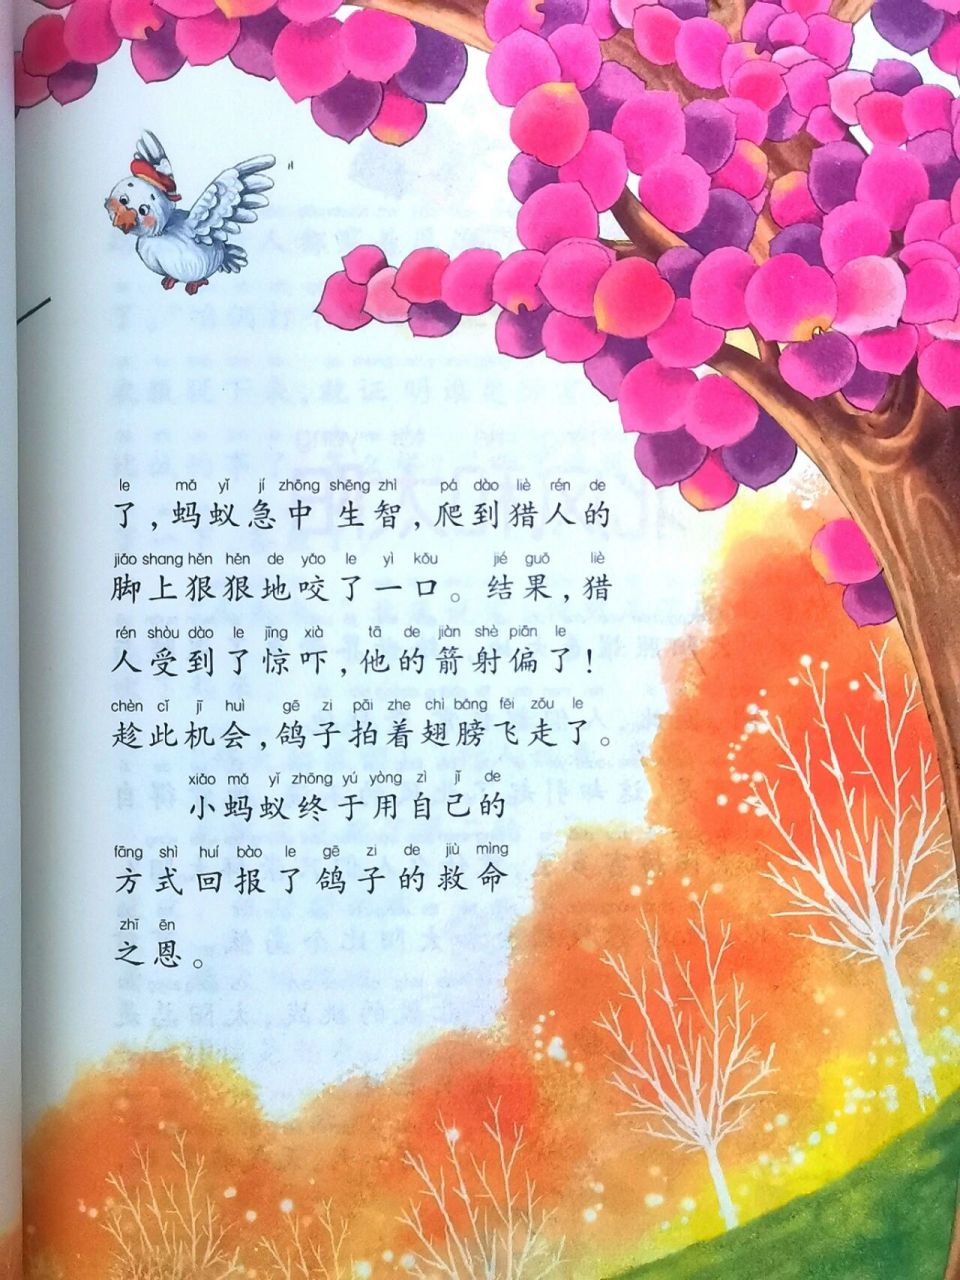 le mǎ yǐ jí zhōng shēng zhì pá dào liè rén de
了,蚂蚁急中生智,爬到猎人的
jiǎo shang hěn hěn de yǎo le yì kǒu jié guǒ liè
脚上狠狠地咬了一口。结果,猎
rén shòu dào le jīng xià tā de jiàn shè piān le
人受到了惊吓,他的箭射偏了!
chèn cǐ jī huì gē zi pāi zhe chì bǎng fēi zǒu le
趁此机会,鸽子拍着翅膀飞走了。
xiǎo mǎ yǐ zhōng yú yòng zì jǐ de
小蚂蚁终于用自己的
fāng shì huí bào le gē zi de jiù mìng
方式回报了鸽子的救命
zhī ēn
之恩。